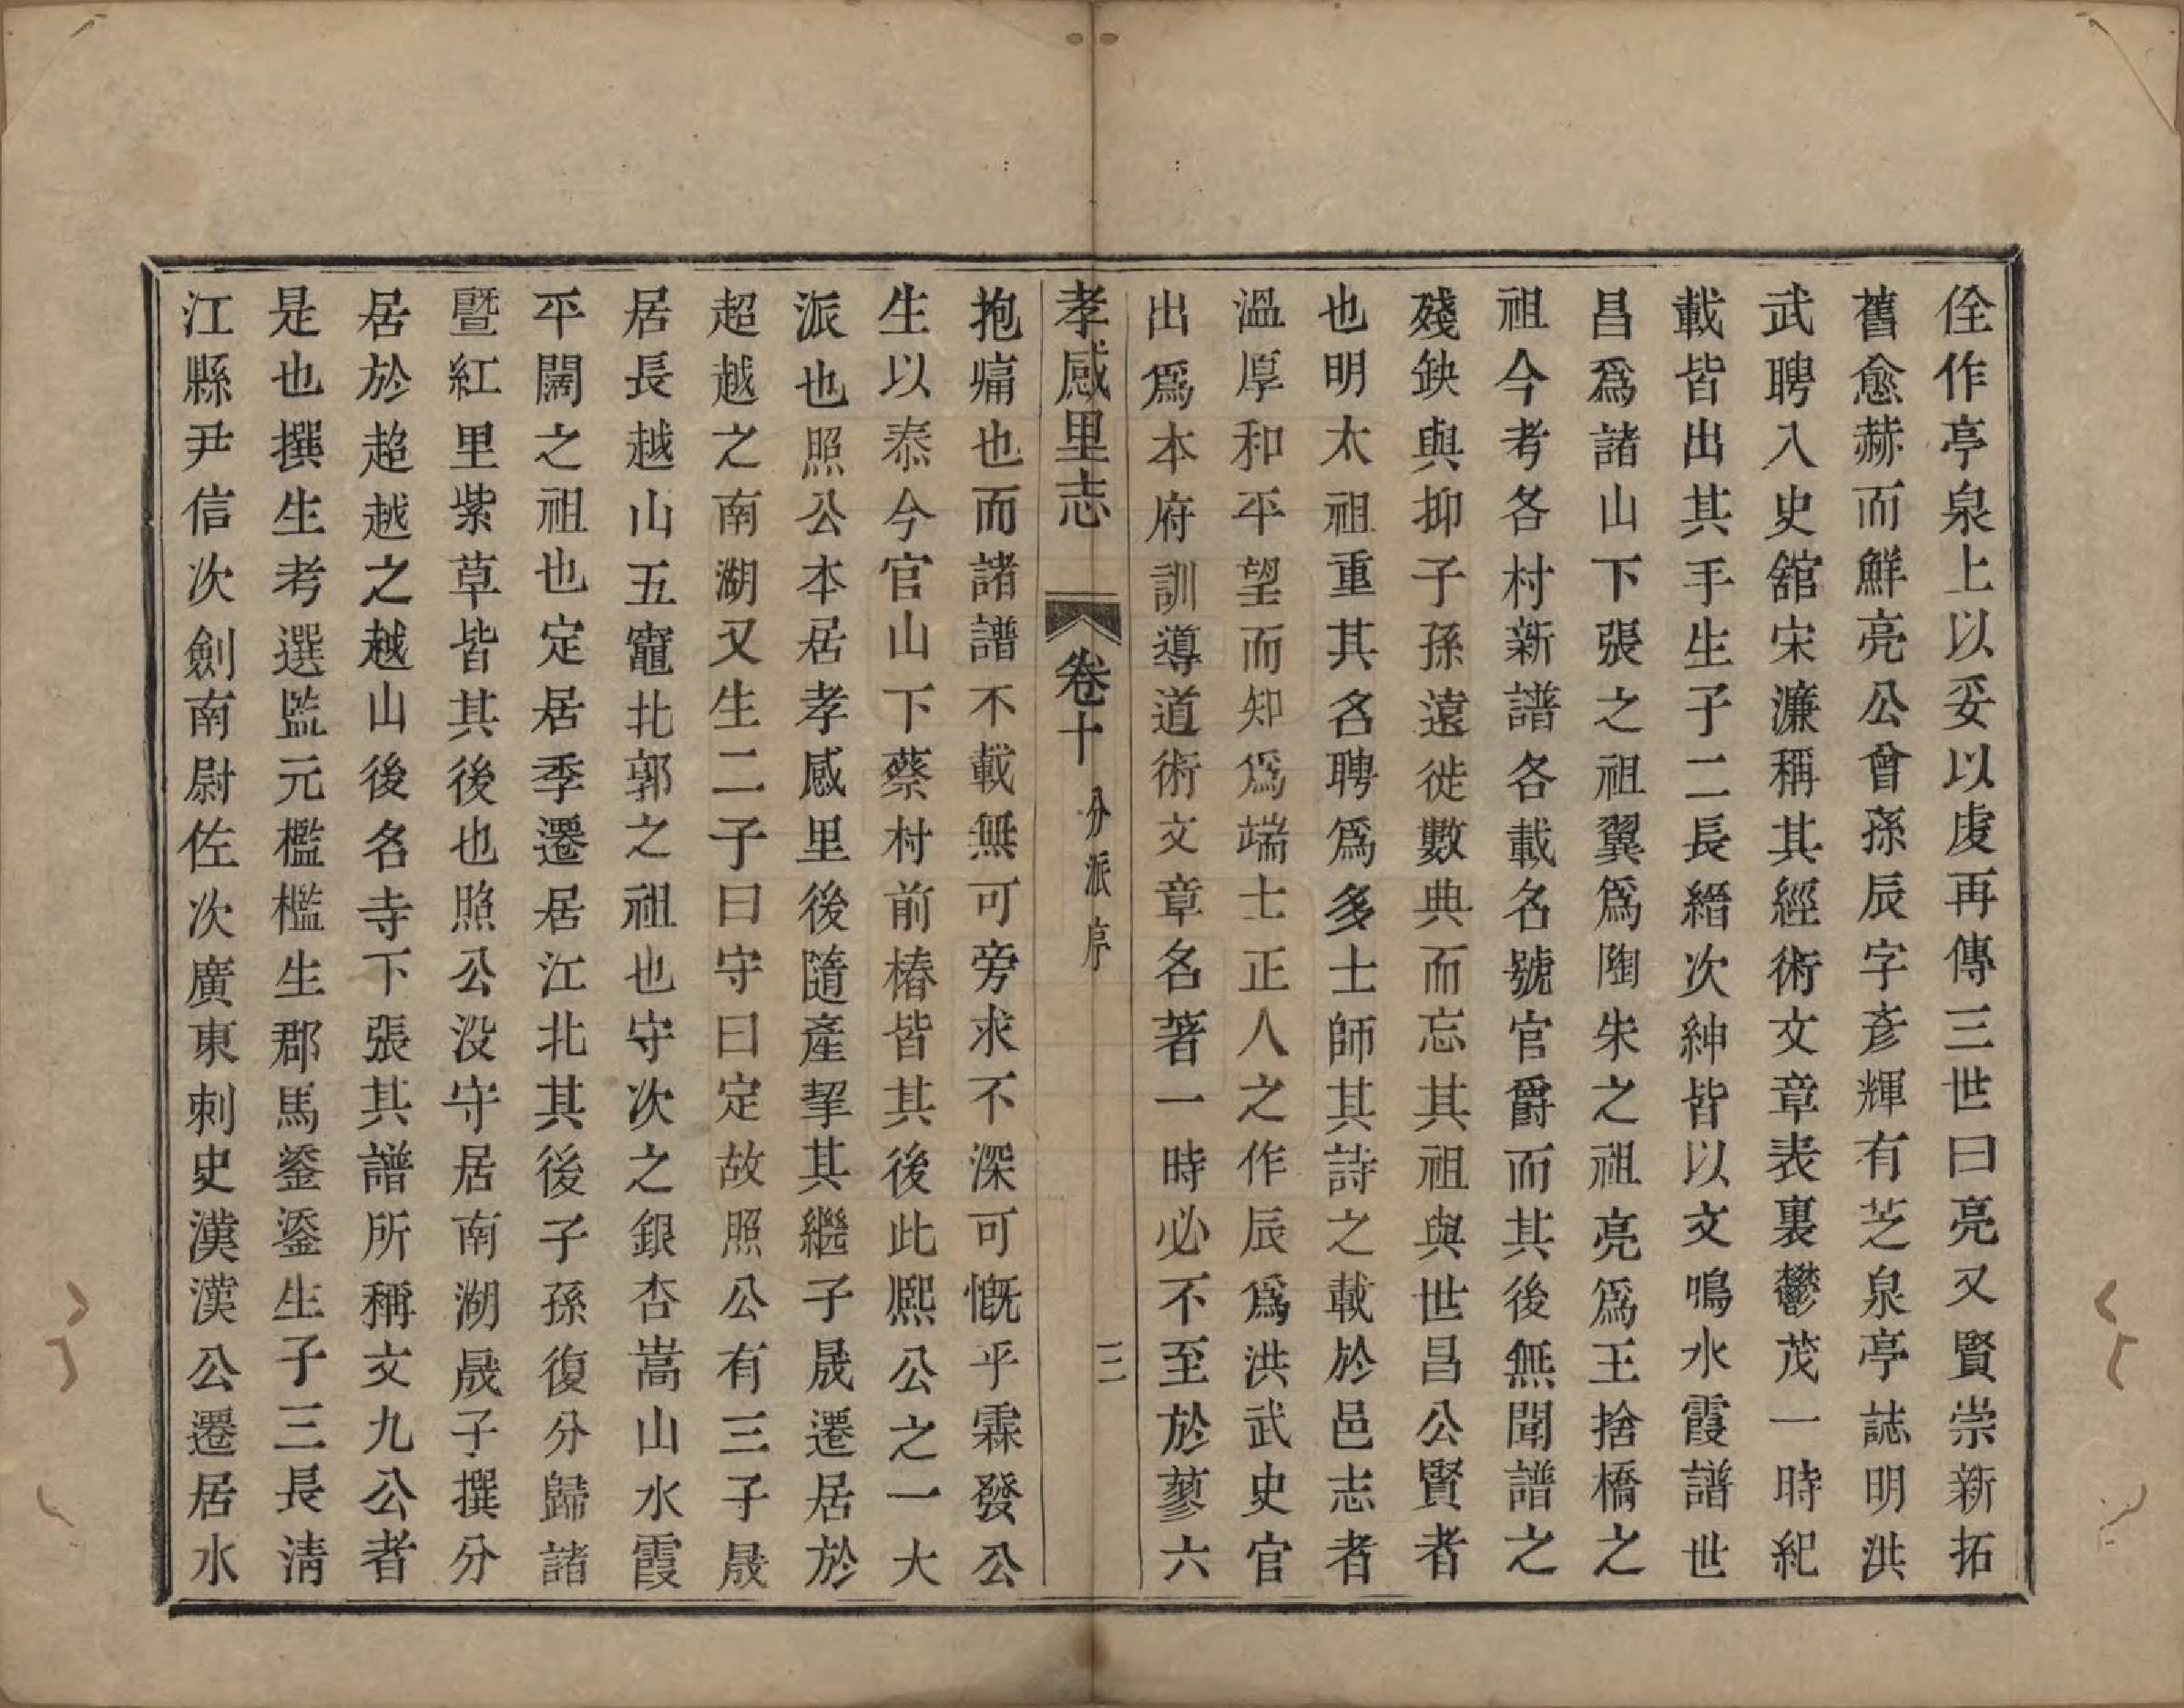 佺作亭泉上以妥以虔再傳三世曰亮又賢崇新拓
舊愈赫而鮮亮公曾孫辰字彥輝有芝泉亭誌明洪
武聘入史舘宋濂稱其經術文章表裏鬱茂一時紀
載皆出其手生子二長縉次紳皆以文鳴水霞譜世
昌爲諸山下張之祖翼爲陶朱之祖亮爲王捨橋之
祖今考各村新譜各載名號官爵而其後無聞譜之
殘缺與抑子孫遠徙數典而忘其祖與世昌公賢者
也明太祖重其名聘爲多士師其詩之載於邑志者
溫厚和平望而知爲端士正人之作辰爲洪武史官
出爲本府訓導道術文章名著一時必不至於蓼六
孝感里志 卷十 分派序 三
抱痛也而諸譜不載無可旁求不深可慨乎霖發公
生以泰今官山下蔡村前椿皆其後此熙公之一大
派也照公本居孝感里後隨產挈其繼子晟遷居於
超越之南湖又生二子曰守曰定故照公有三子晟
居長越山五竈北郭之祖也守次之銀杏嵩山水霞
平闊之祖也定居季遷居江北其後子孫復分歸諸
暨紅里紫草皆其後也照公没守居南湖晟子撰分
居於超越之越山後名寺下張其譜所稱文九公者
是也撰生考選監元檻檻生郡馬鎣鎣生子三長淸
江縣尹信次劍南尉佐次廣東刺史漢漢公遷居水